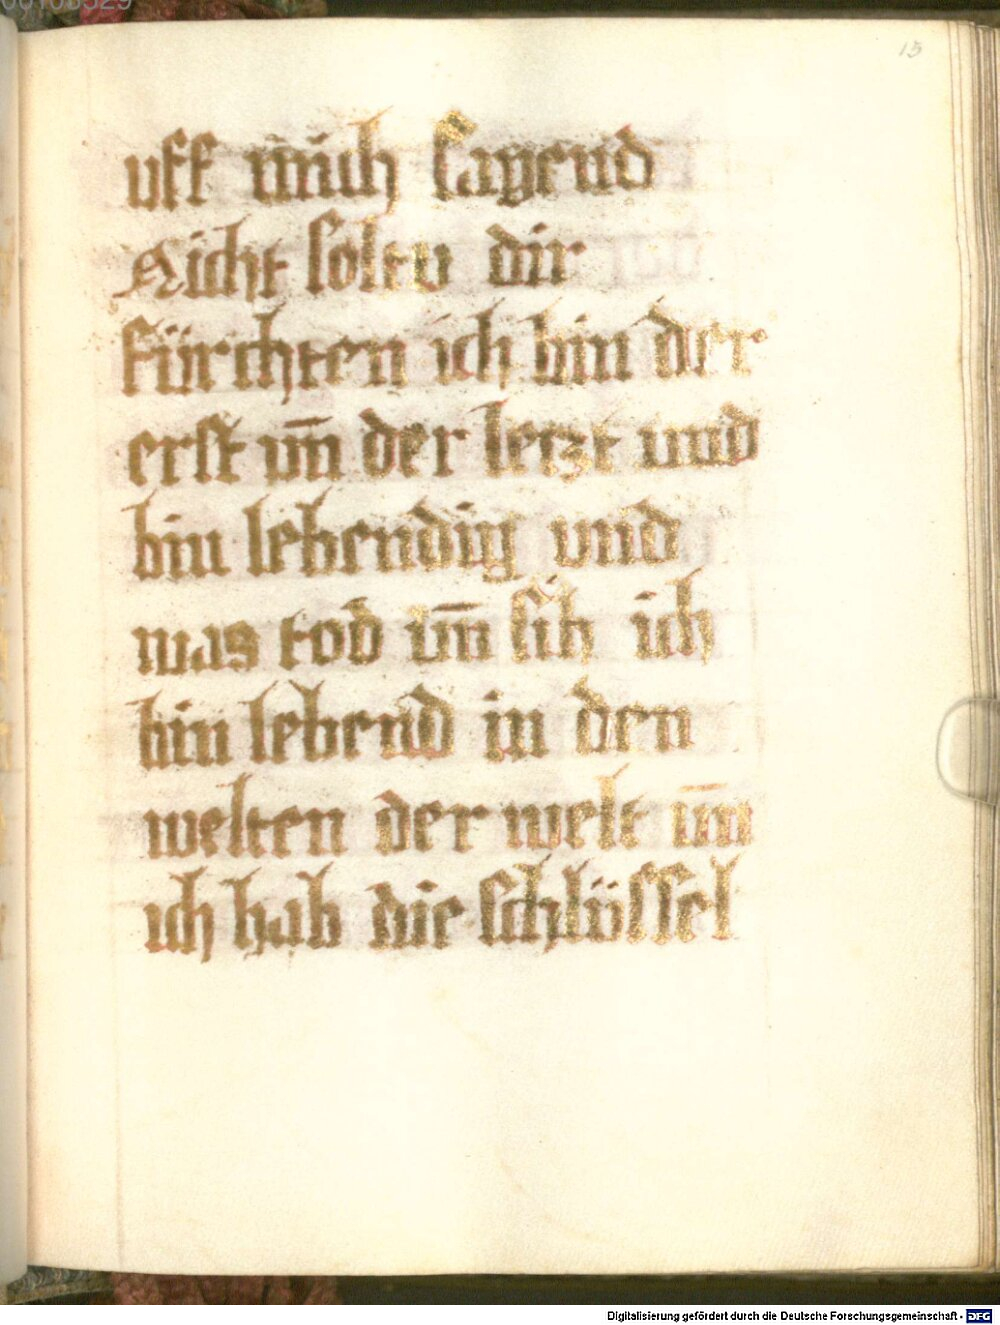 15
uff mich sagend
Nicht soltu dir
fürchten ich bin der
erst vn̄ der letzt vnd
bin lebendig vnd
was tod vn̄ sih ich
bin lebend in den
welten der welt vn̄
ich hab die schlüssel
Digitalisierung gefördert durch die Deutsche Forschungsgemeinschaft - DFG